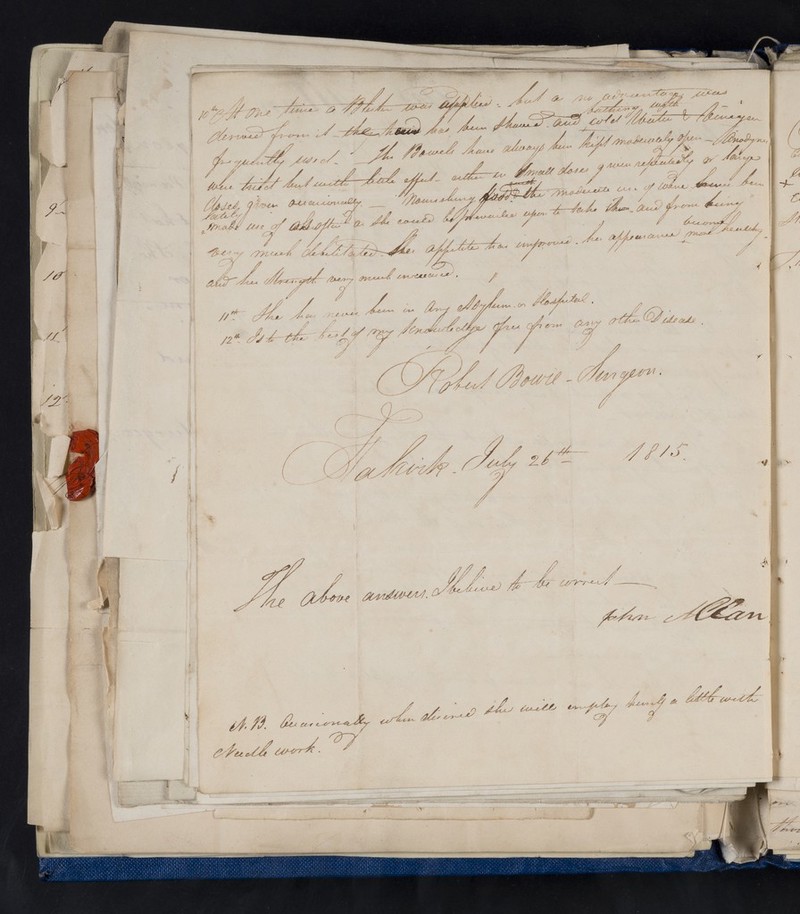 10th At one time a Blister was applied - but a no advantage was
derived from it the head has been shaved and bathing with cold Water & Vinegar
frequently used. - The Bowels have always been kept moderately open - Anodynes
were tried but with little effect - either in small doses given repeatedly or large
doses given occasionally - Nourishing food & the moderate use of wine have been
lately made use of as often as she could be prevailed upon to take them and from being
very much debilitated. her appetite has improved - her appearance become more healthy
and her Strength very much increased.
11th She has never been in any Asylum or Hospital.
12th Is to the best of my knowledge free from any other Disease.
Robert Bowie - Surgeon.
Falkirk. July 26th 1815.
The above answers I believe to be correct -
John
N.B. Occasionally when desired she will employ herself a little with
Needle work.
9
10
11
12